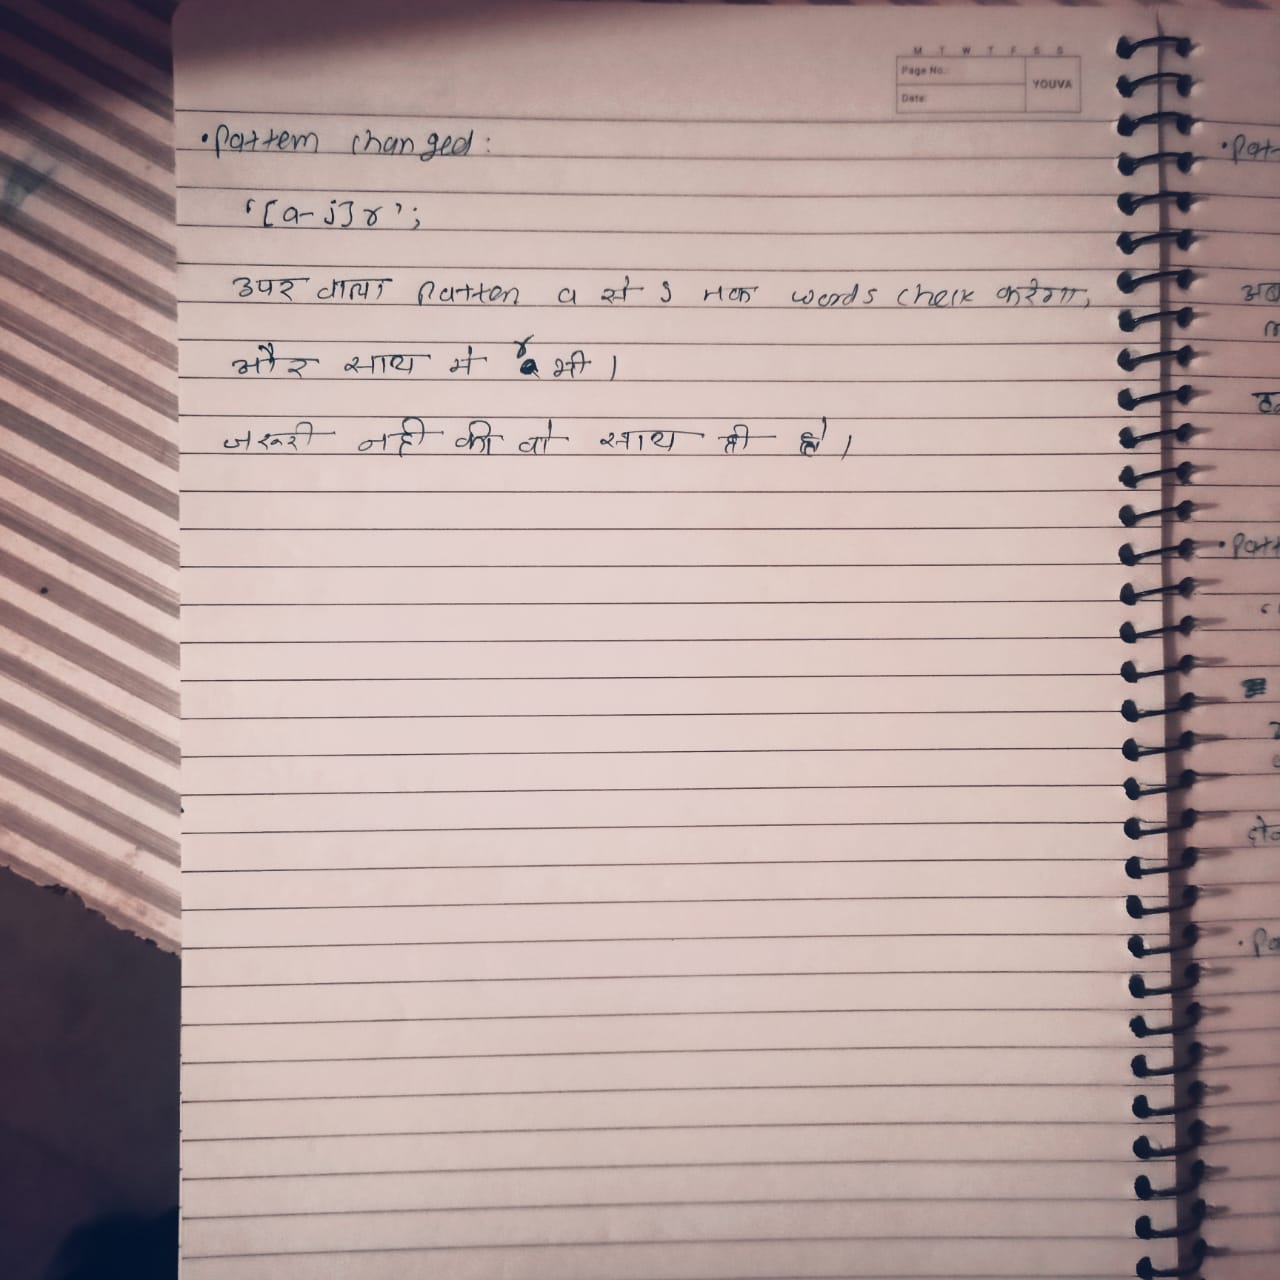 M T W T F S S
Page No.:
YOUVA
Date:
• Pattern changed:
'[a-j]r';
उपर वाला Patten a से j तक words check करेगा,
और साथ मे r भी।
जरूरी नही की वो साथ ही हो।
• Pat
• Patt